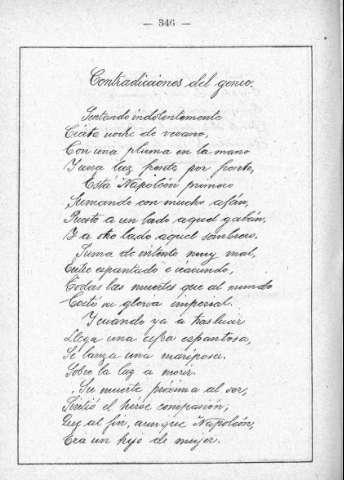 — 346 —
Contradicciones del genio.
Sentando indolentemente
Cierta noche de verano,
Con una pluma en la mano
Y una luz frente por frente,
Está Napoleón primero
Sumando con mucho afán,
Puesto a un lado aquel gabán,
Y a otro lado aquel sombrero.
Suma de intento muy mal,
Entre espantado e iracundo,
Todas las muertes que al mundo
Costó su gloria imperial.
Y cuando ya a traslucir
Llega una cifra espantosa,
Se lanza una mariposa
Sobre la luz a morir.
Su muerte próxima al ver,
Sintió el héroe compasión;
Que al fin, aunque Napoleón,
Era un hijo de mujer.